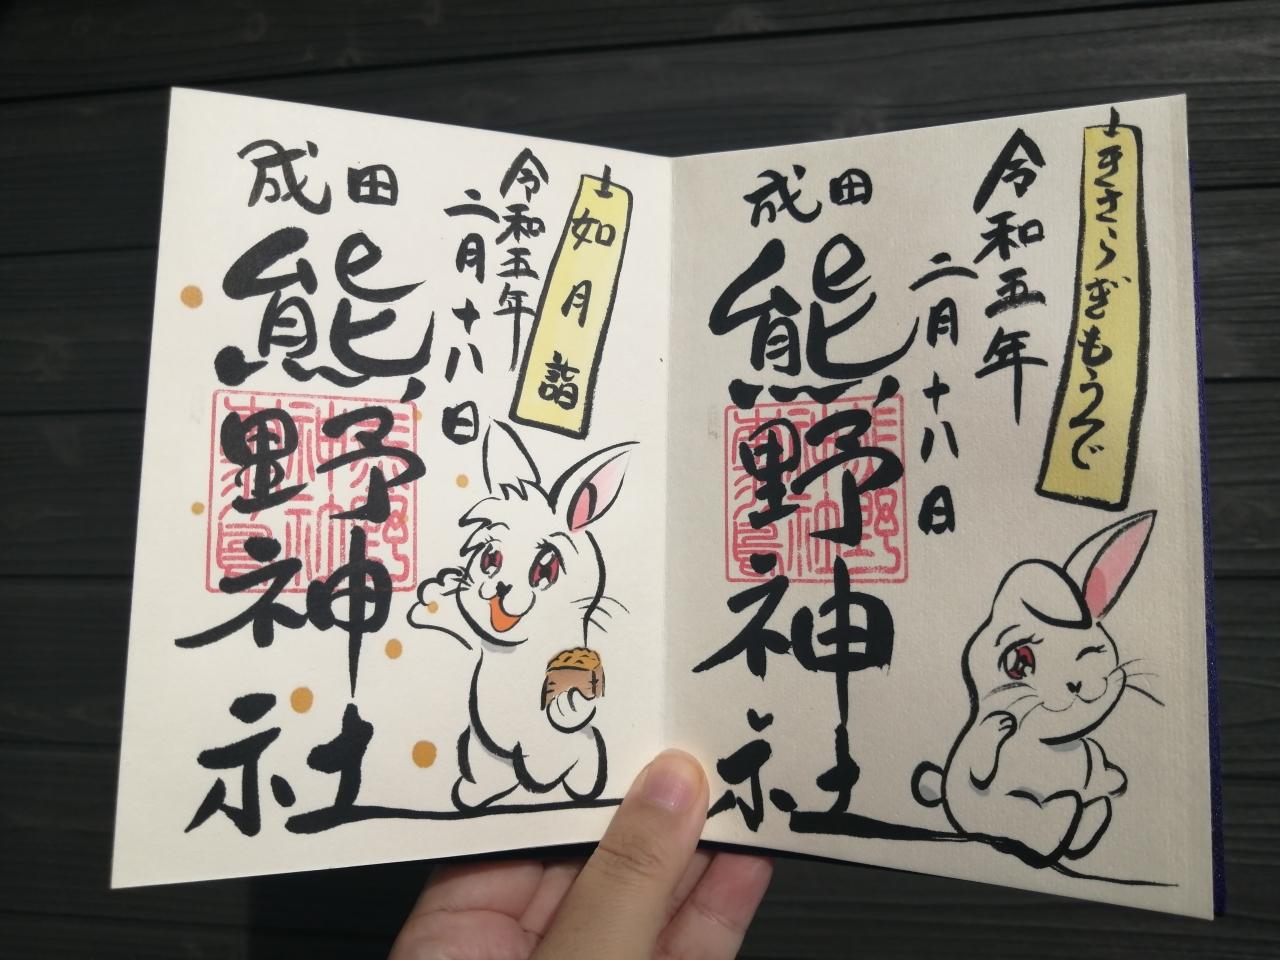 きさらぎもうで
令和五年
二月十八日
成田
熊野神社
如月詣
令和五年
二月十八日
成田
熊野神社